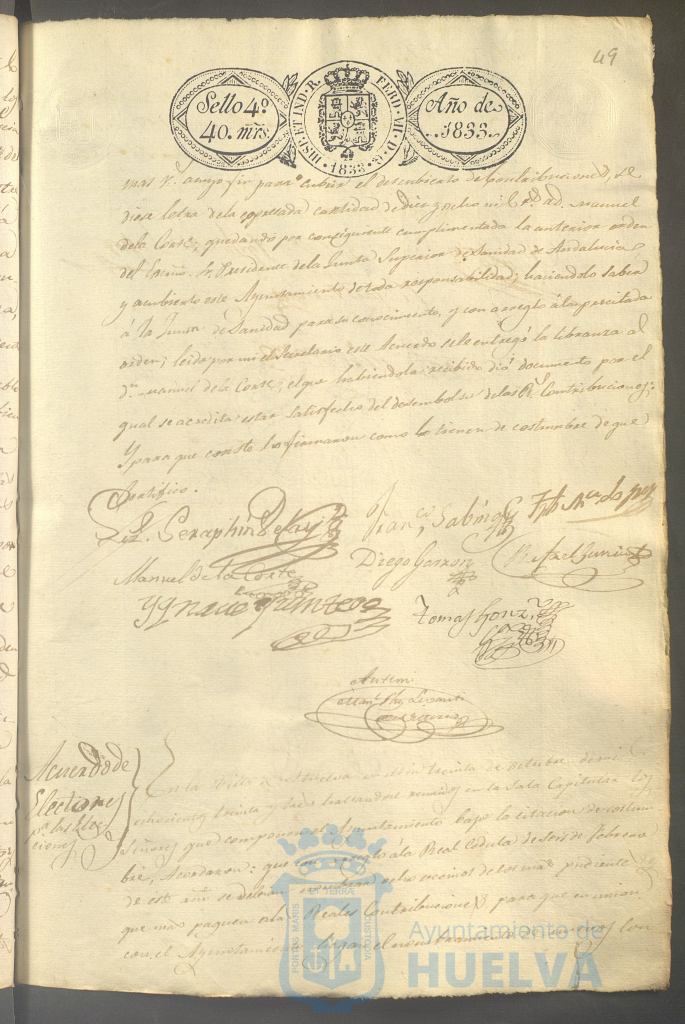 49
Sello 4º
40. mrs.
HISP. ET IND. R. FERD. VII. D. G. 1833.
Año de
1833.
mas para cubrir el descubierto de Contribuciones, se
diese letra de la expresada cantidad de diez y ocho mil r.s á d. Manuel
de la Corte; quedando por consiguiente cumplimentada la anterior orden
del Excmo. Sr. Presidente de la Junta Superior de Sanidad de Andalucia
y acubierto este Ayuntamiento de toda responsabilidad; haciendolo saber
á la Junta de Sanidad para su conocimiento, y con arreglo á la precitada
orden; leido por mi el Secretario este Acuerdo se le entregó la libranza al
d.n Manuel de la Corte; el que habiendola recibido dió documento por el
qual se acredita estar satisfecho del desembolso de las R.s Contribuciones;
Y para que conste lo firmaron como lo tienen de costumbre de que
Certifico.
Seraphin
Fran.co Sabino
Manuel de la Corte
Diego Garzon
Rafael
Ygnacio
Tomas Gonz
Antem
Acuerdo de
Electores
p.a las Elec
ciones
En la Villa de Huelva en dia treinta de Octubre de mil
ochocientos treinta y tres hallandose reunidos en la Sala Capitular los
Señores que componen el Ayuntamiento bajo la citacion de costum
bre, Acordaron: que con arreglo á la Real Cedula de Seis de febrero
de este año se debian nombrar ocho vecinos de los mas pudientes
que mas paguen en las Reales Contribuciones para que en union
con el Ayuntamiento hagan el nombramiento de
PORTUS MARIS ET TERRE CUSTODIA
Ayuntamiento de
HUELVA